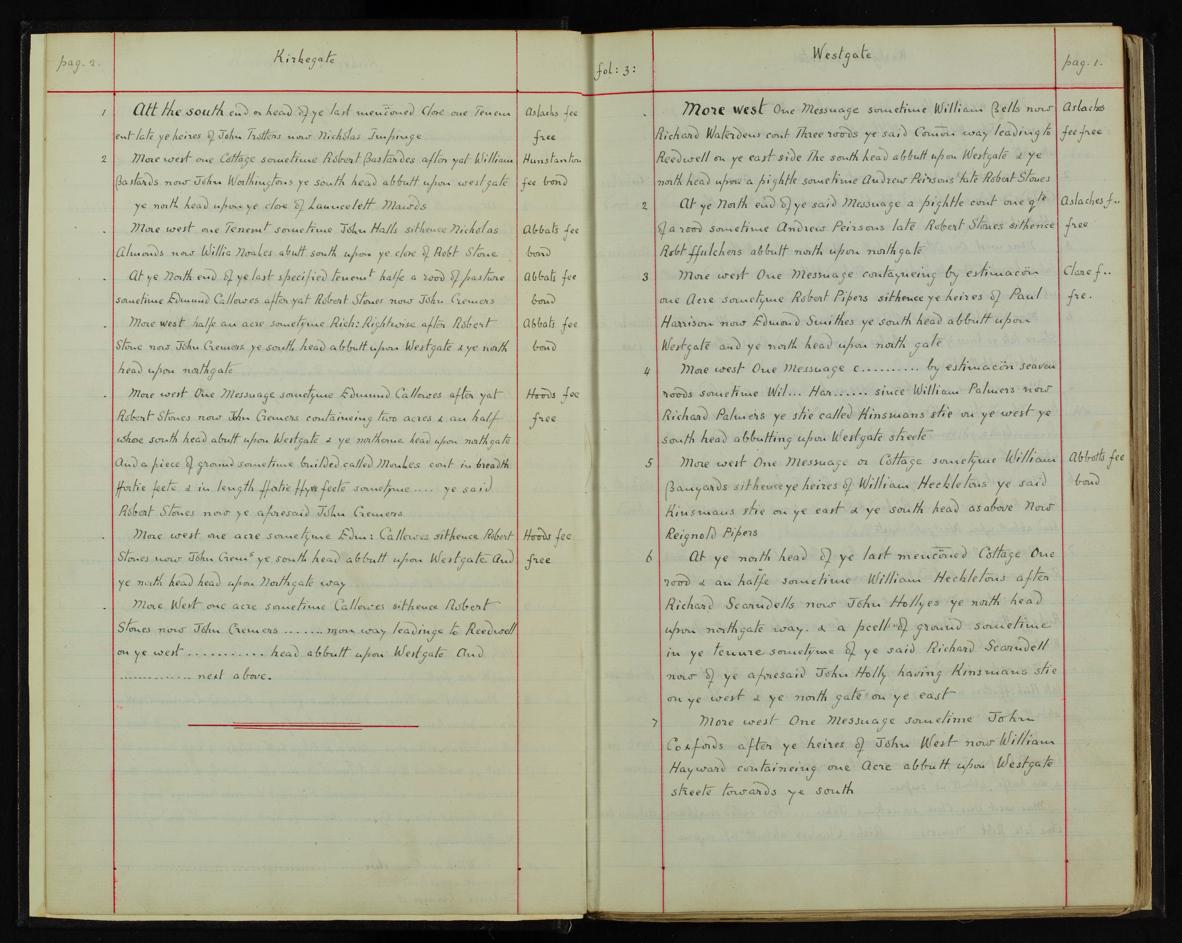 pag. 2. Kirkegate
1 Att the south end or head of ye last mencioned Close one Tenem Aslachs fee
ent late ye heires of John Trotters now Nicholas Impinge free
2 More west one Cottage sometime Robert Bastardes after yat William Hunstanton
Bastards now John Worthingtons ye south head abbutt upon westgate fee bond
ye north head upon ye close of Launcelett Mawds
. More west one Tenemt sometime John Halls sithence Nicholas Abbats fee
Almonds now Willia Noakes abutt south upon ye close of Robt Stone bond
. At ye North end of ye last specified tenemt halfe a rood of pasture Abbats fee
sometime Edmund Callowes after yat Robert Stones now John Cremers bond
. More west halfe an acre sometyme Rich: Rightwise after Robert Abbats fee
Stone now John Cremers ye south head abbutt upon Westgate & ye north bond
head upon northgate
. More west One Messuage sometyme Edmund Callowes after yat Hoods fee
Robert Stones now John Cremers containeing two acres & an half free
whose south head abutt upon Westgate & ye northerne head upon northgate
And a piece of ground sometime builded called Monkes cont in breadth
ffortie feete & in length ffortie ffyve feete sometyme .... ye said
Robert Stones now ye aforesaid John Cremers
. More west one acre sometyme Edm: Callowes sithence Robert Hoods fee
Stones now John Cremrs ye south head abbutt upon Westgate And free
ye north head head upon Northgate way
. More West one acre sometime Callowes sithence Robert
Stones now John Cremers ........ mon way leadinge to Reedwell
on ye west ............ head abbutt upon Westgate And
............. next above.
fol: 3: Westgate pag. 1.
. More west One Messuage sometime William Bells now Aslachs
Richard Waterdens cont Three roods ye said Comōn way leading to fee free
Reedwell on ye east side The south head abbutt upon Westgate & ye
north head upon a pightle sometime Andrew Peirsons late Robert Stones
2 At ye North end of ye said Messuage a pightle cont one qte Aslaches f..
of a rood sometime Andrew Peirsons late Robert Stones sithence free
Robt ffulchers abbutt north upon northgate
3 More west One Messuage contayneing by estimacōn Clare f..
one Acre sometyme Robert Pipers sithence ye heires of Paul fre.
Harrison now Edmond Smithes ye south head abbutt upon
Westgate and ye north head upon north gate
4 More west One Messuage c.......... by estimacōn seaven
roods sometime Wil... Har...... since William Palmers now
Richard Palmers ye stie called Hinsmans stie on ye west ye
south head abbutting upon Westgate streete
5 More west One Messuage or Cottage sometyme William Abbotts fee
Banyards sithence ye heires of William Heckletons ye said bond
Kinsmans stie on ye east & ye south head as above Now
Reignold Pipers
6 At ye north head of ye last mencōned Cottage One
rood & an halfe sometime William Heckletons after
Richard Scarndells now John Hollyes ye north head
upon northgate way. & a pcell of ground sometime
in ye tenure sometyme of ye said Richard Scarndell
now of ye aforesaid John Holly having Kinsmans stie
on ye west & ye north gate on ye east
7 More west One Messuage sometime John
Coxfords after ye heires of John West now William
Hayward containeing one Acre abbutt upon Westgate
streete towards ye south